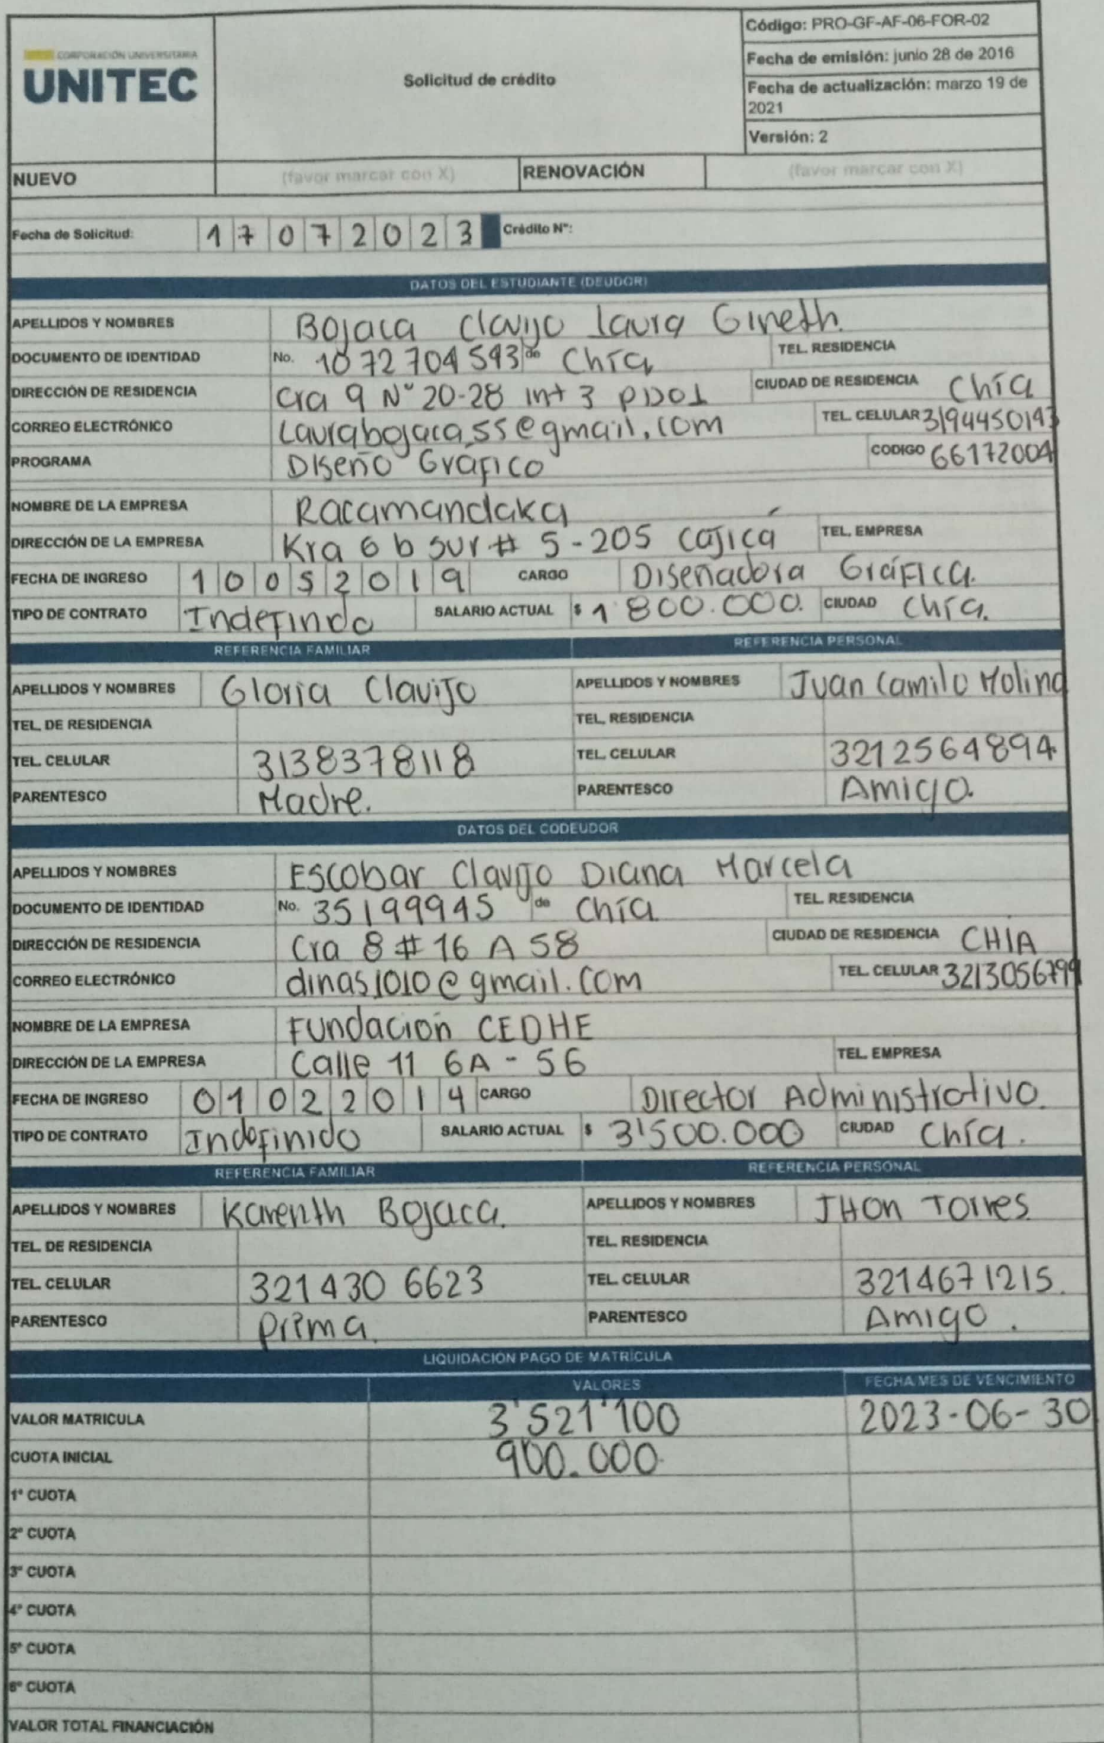 CORPORACIÓN UNIVERSITARIA
UNITEC
Solicitud de crédito
Código: PRO-GF-AF-06-FOR-02
Fecha de emisión: junio 28 de 2016
Fecha de actualización: marzo 19 de
2021
Versión: 2
NUEVO (favor marcar con X) RENOVACIÓN (favor marcar con X)
Fecha de Solicitud: 1 7 0 7 2 0 2 3 Crédito N°:
DATOS DEL ESTUDIANTE (DEUDOR)
APELLIDOS Y NOMBRES Bojaca Clavijo Laura Gineth
DOCUMENTO DE IDENTIDAD No. 1072704593 de Chía TEL. RESIDENCIA
DIRECCIÓN DE RESIDENCIA Cra 9 N° 20-28 int 3 piso1 CIUDAD DE RESIDENCIA Chía
CORREO ELECTRÓNICO Laurabojaca55@gmail.com TEL. CELULAR 3194450143
PROGRAMA Diseño Gráfico CODIGO 66172004
NOMBRE DE LA EMPRESA Racamandaka
DIRECCIÓN DE LA EMPRESA Kra 6 b sur # 5-205 Cajicá TEL. EMPRESA
FECHA DE INGRESO 1 0 0 5 2 0 1 9 CARGO Diseñadora Gráfica.
TIPO DE CONTRATO Indefindo SALARIO ACTUAL $ 1'800.000. CIUDAD Chía.
REFERENCIA FAMILIAR REFERENCIA PERSONAL
APELLIDOS Y NOMBRES Gloria Clavijo APELLIDOS Y NOMBRES Juan Camilo Molina
TEL. DE RESIDENCIA TEL. RESIDENCIA
TEL. CELULAR 3138378118 TEL. CELULAR 3212564894
PARENTESCO Madre. PARENTESCO Amigo.
DATOS DEL CODEUDOR
APELLIDOS Y NOMBRES Escobar Clavijo Diana Marcela
DOCUMENTO DE IDENTIDAD No. 35199945 de Chía TEL. RESIDENCIA
DIRECCIÓN DE RESIDENCIA Cra 8 # 16 A 58 CIUDAD DE RESIDENCIA CHIA
CORREO ELECTRÓNICO dinas1010@gmail.com TEL. CELULAR 3213056799
NOMBRE DE LA EMPRESA Fundación CEDHE
DIRECCIÓN DE LA EMPRESA Calle 11 6A-56 TEL. EMPRESA
FECHA DE INGRESO 0 1 0 2 2 0 1 4 CARGO Director Administrativo.
TIPO DE CONTRATO Indefinido SALARIO ACTUAL $ 3'500.000 CIUDAD Chía.
REFERENCIA FAMILIAR REFERENCIA PERSONAL
APELLIDOS Y NOMBRES Karenth Bojaca. APELLIDOS Y NOMBRES JHon Torres
TEL. DE RESIDENCIA TEL. RESIDENCIA
TEL. CELULAR 321430 6623 TEL. CELULAR 3214671215.
PARENTESCO Prima. PARENTESCO Amigo.
LIQUIDACIÓN PAGO DE MATRÍCULA
VALORES FECHA/MES DE VENCIMIENTO
VALOR MATRICULA 3'521'100 2023-06-30
CUOTA INICIAL 900.000
1ª CUOTA
2ª CUOTA
3ª CUOTA
4ª CUOTA
5ª CUOTA
6ª CUOTA
VALOR TOTAL FINANCIACIÓN